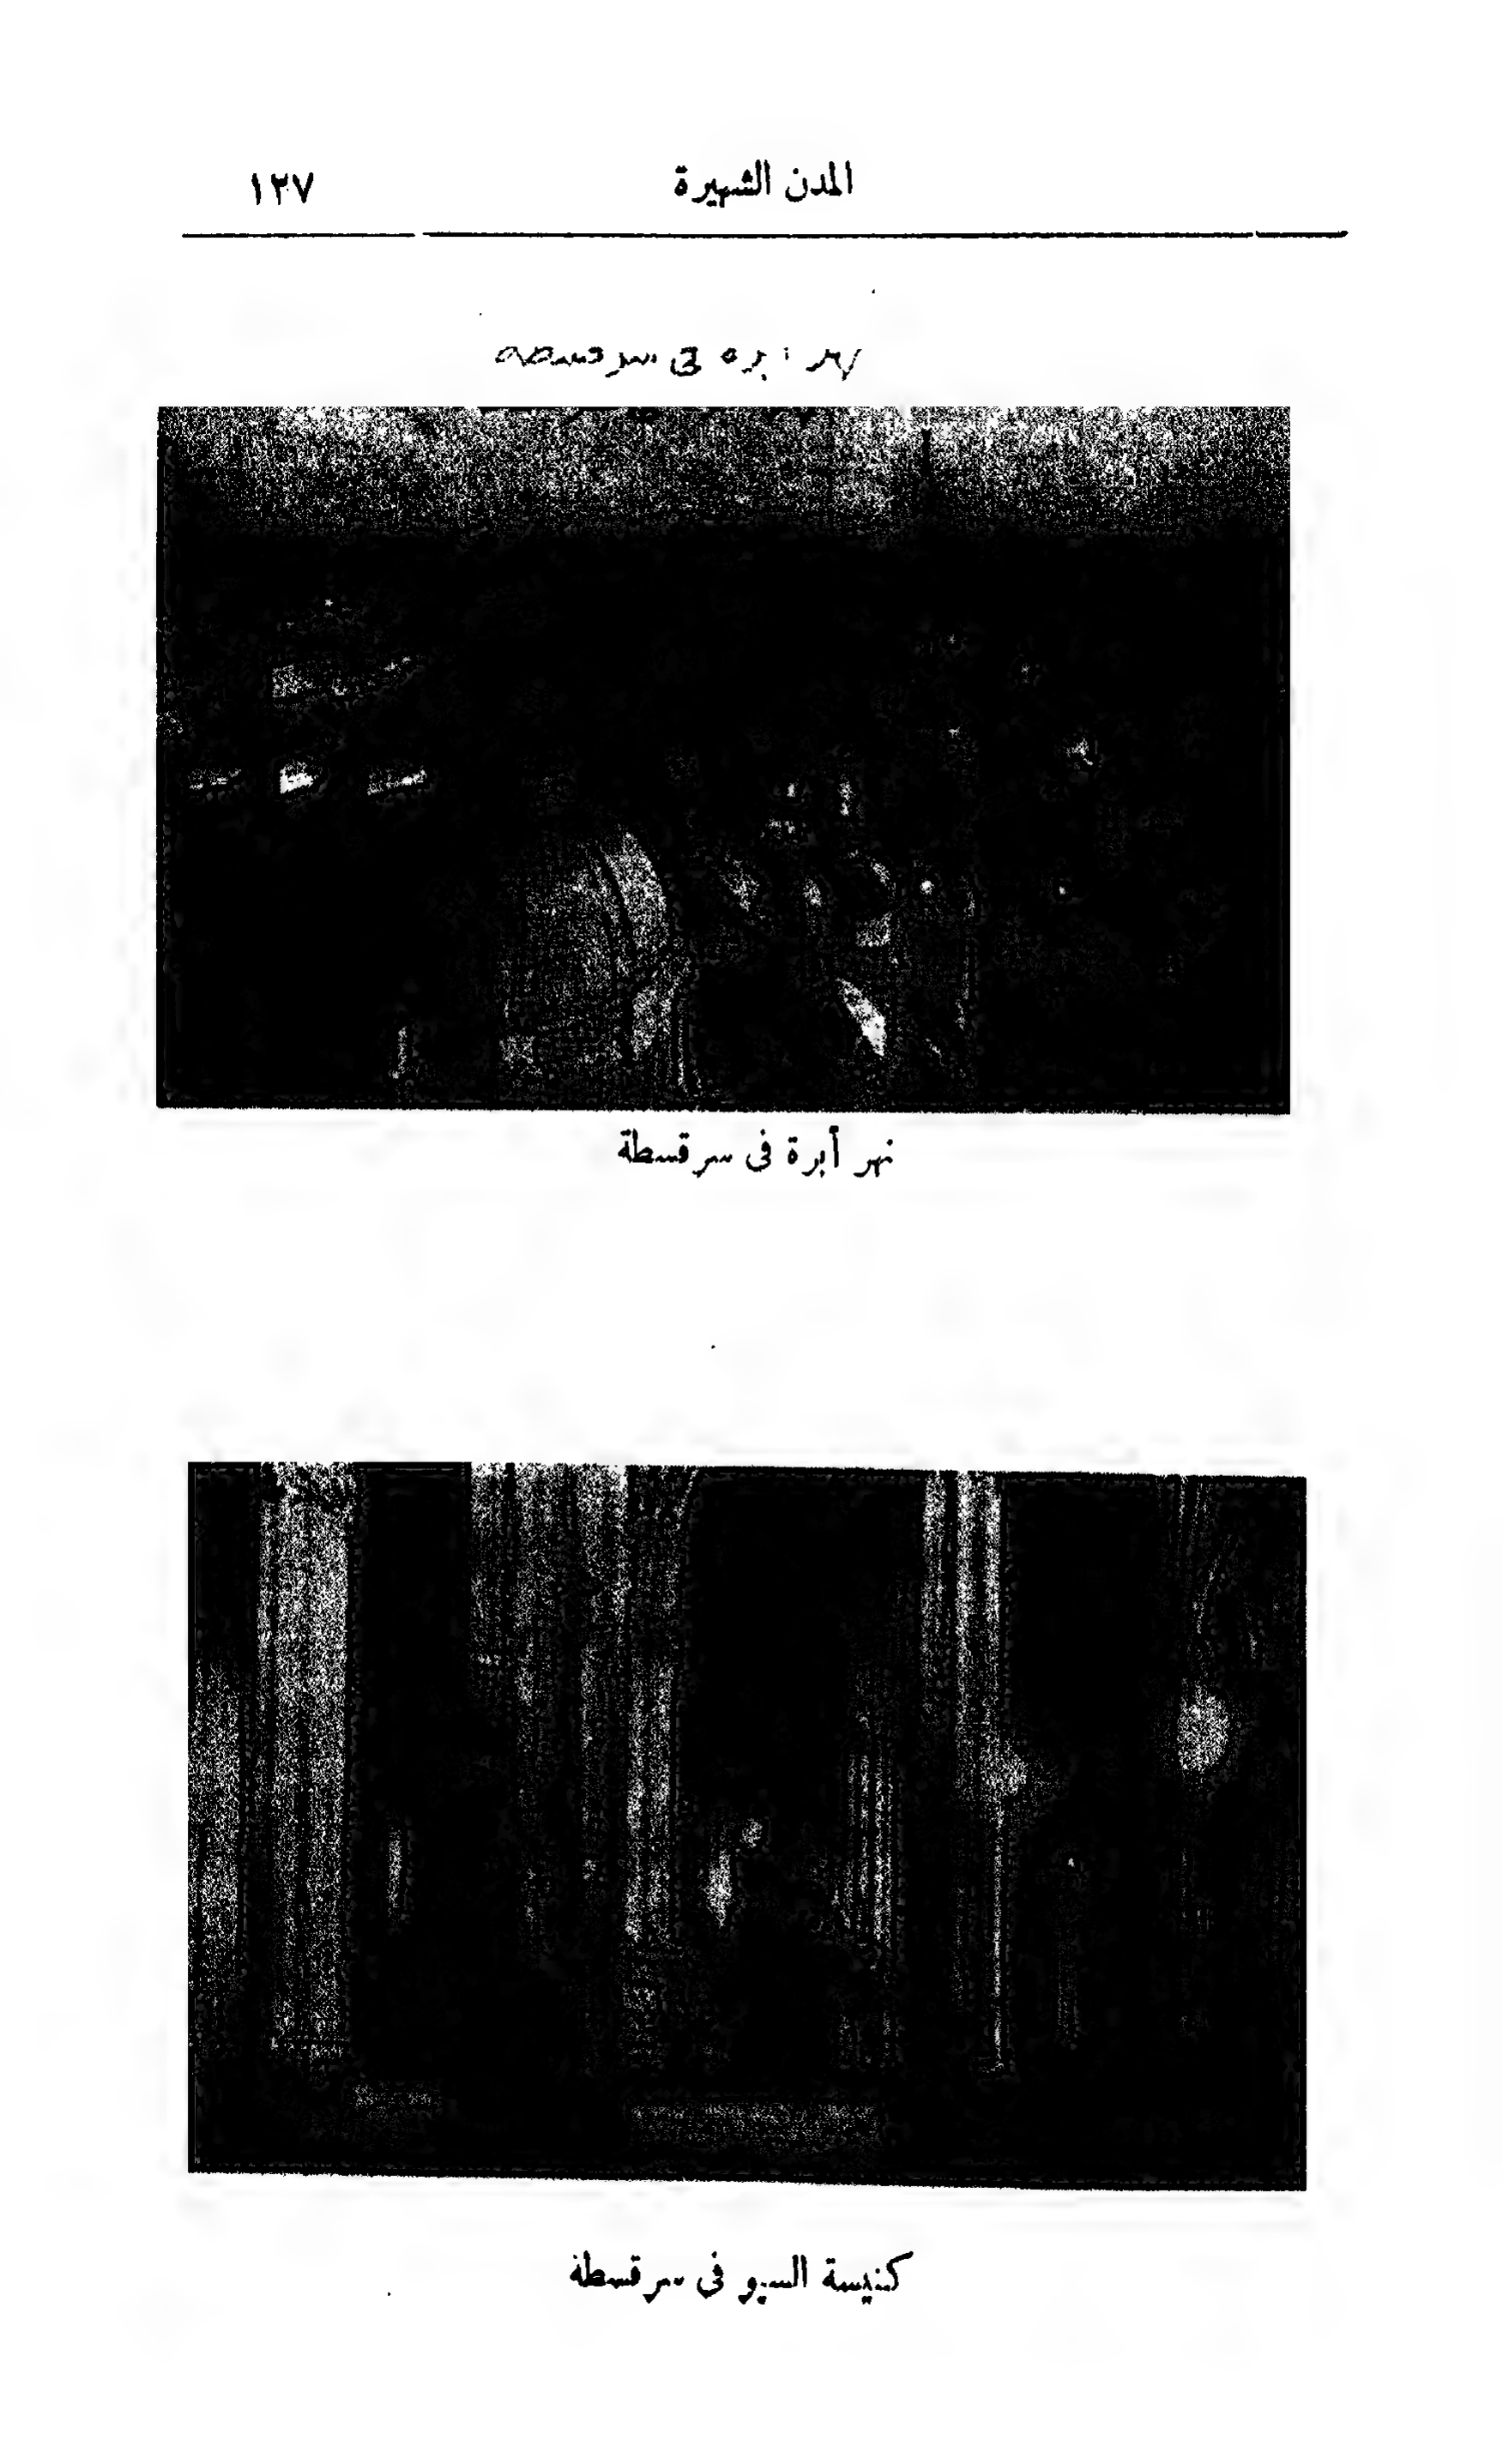 المدن الشهيرة
١٢٧
نهر ابره فى سرقسطه
نهر أبرة فى سرقسطة
كنيسة السيو فى سرقسطة